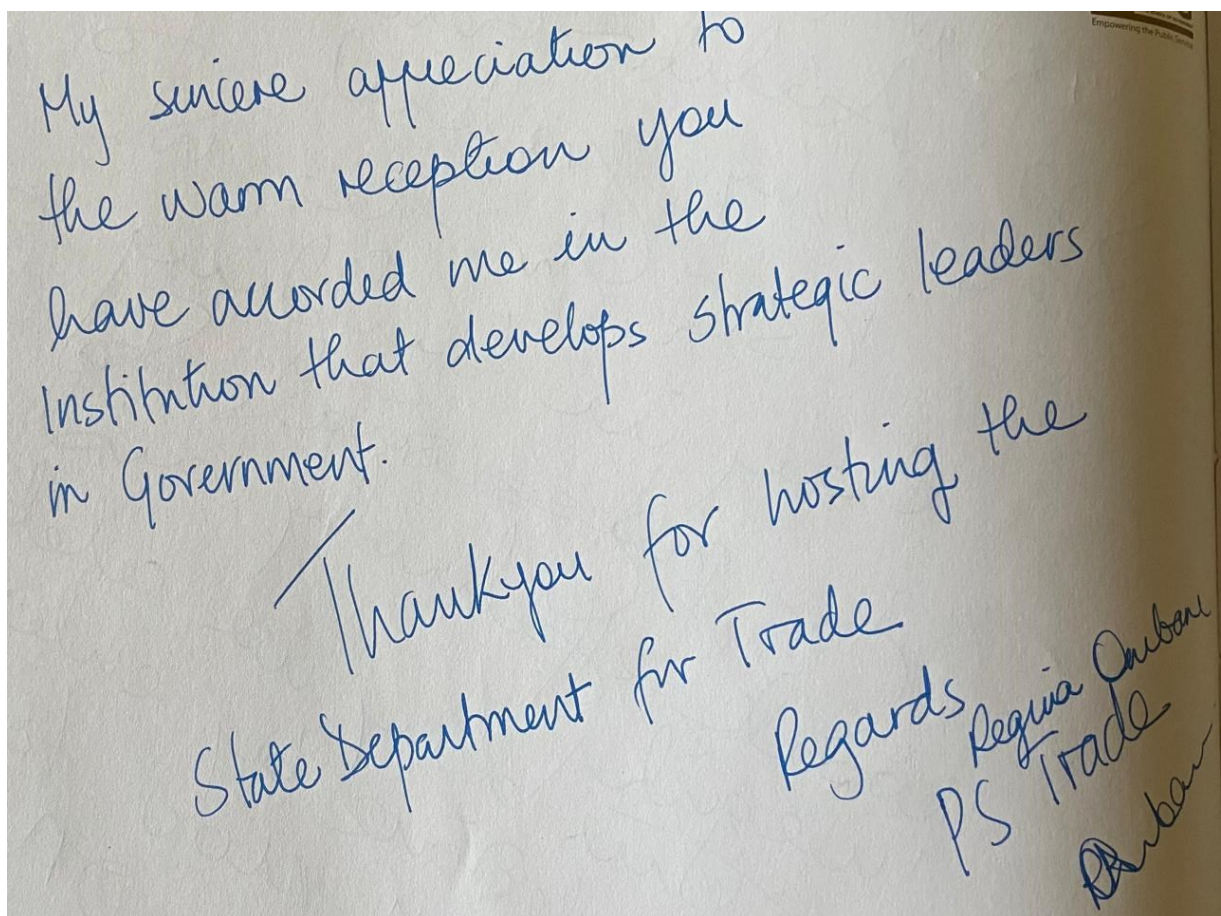 Empowering the Public Service
My sincere appreciation to
the warm reception you
have accorded me in the
Institution that develops strategic leaders
in Government.
Thankyou for hosting the
State Department for Trade
Regards
Regina Ombam
PS Trade